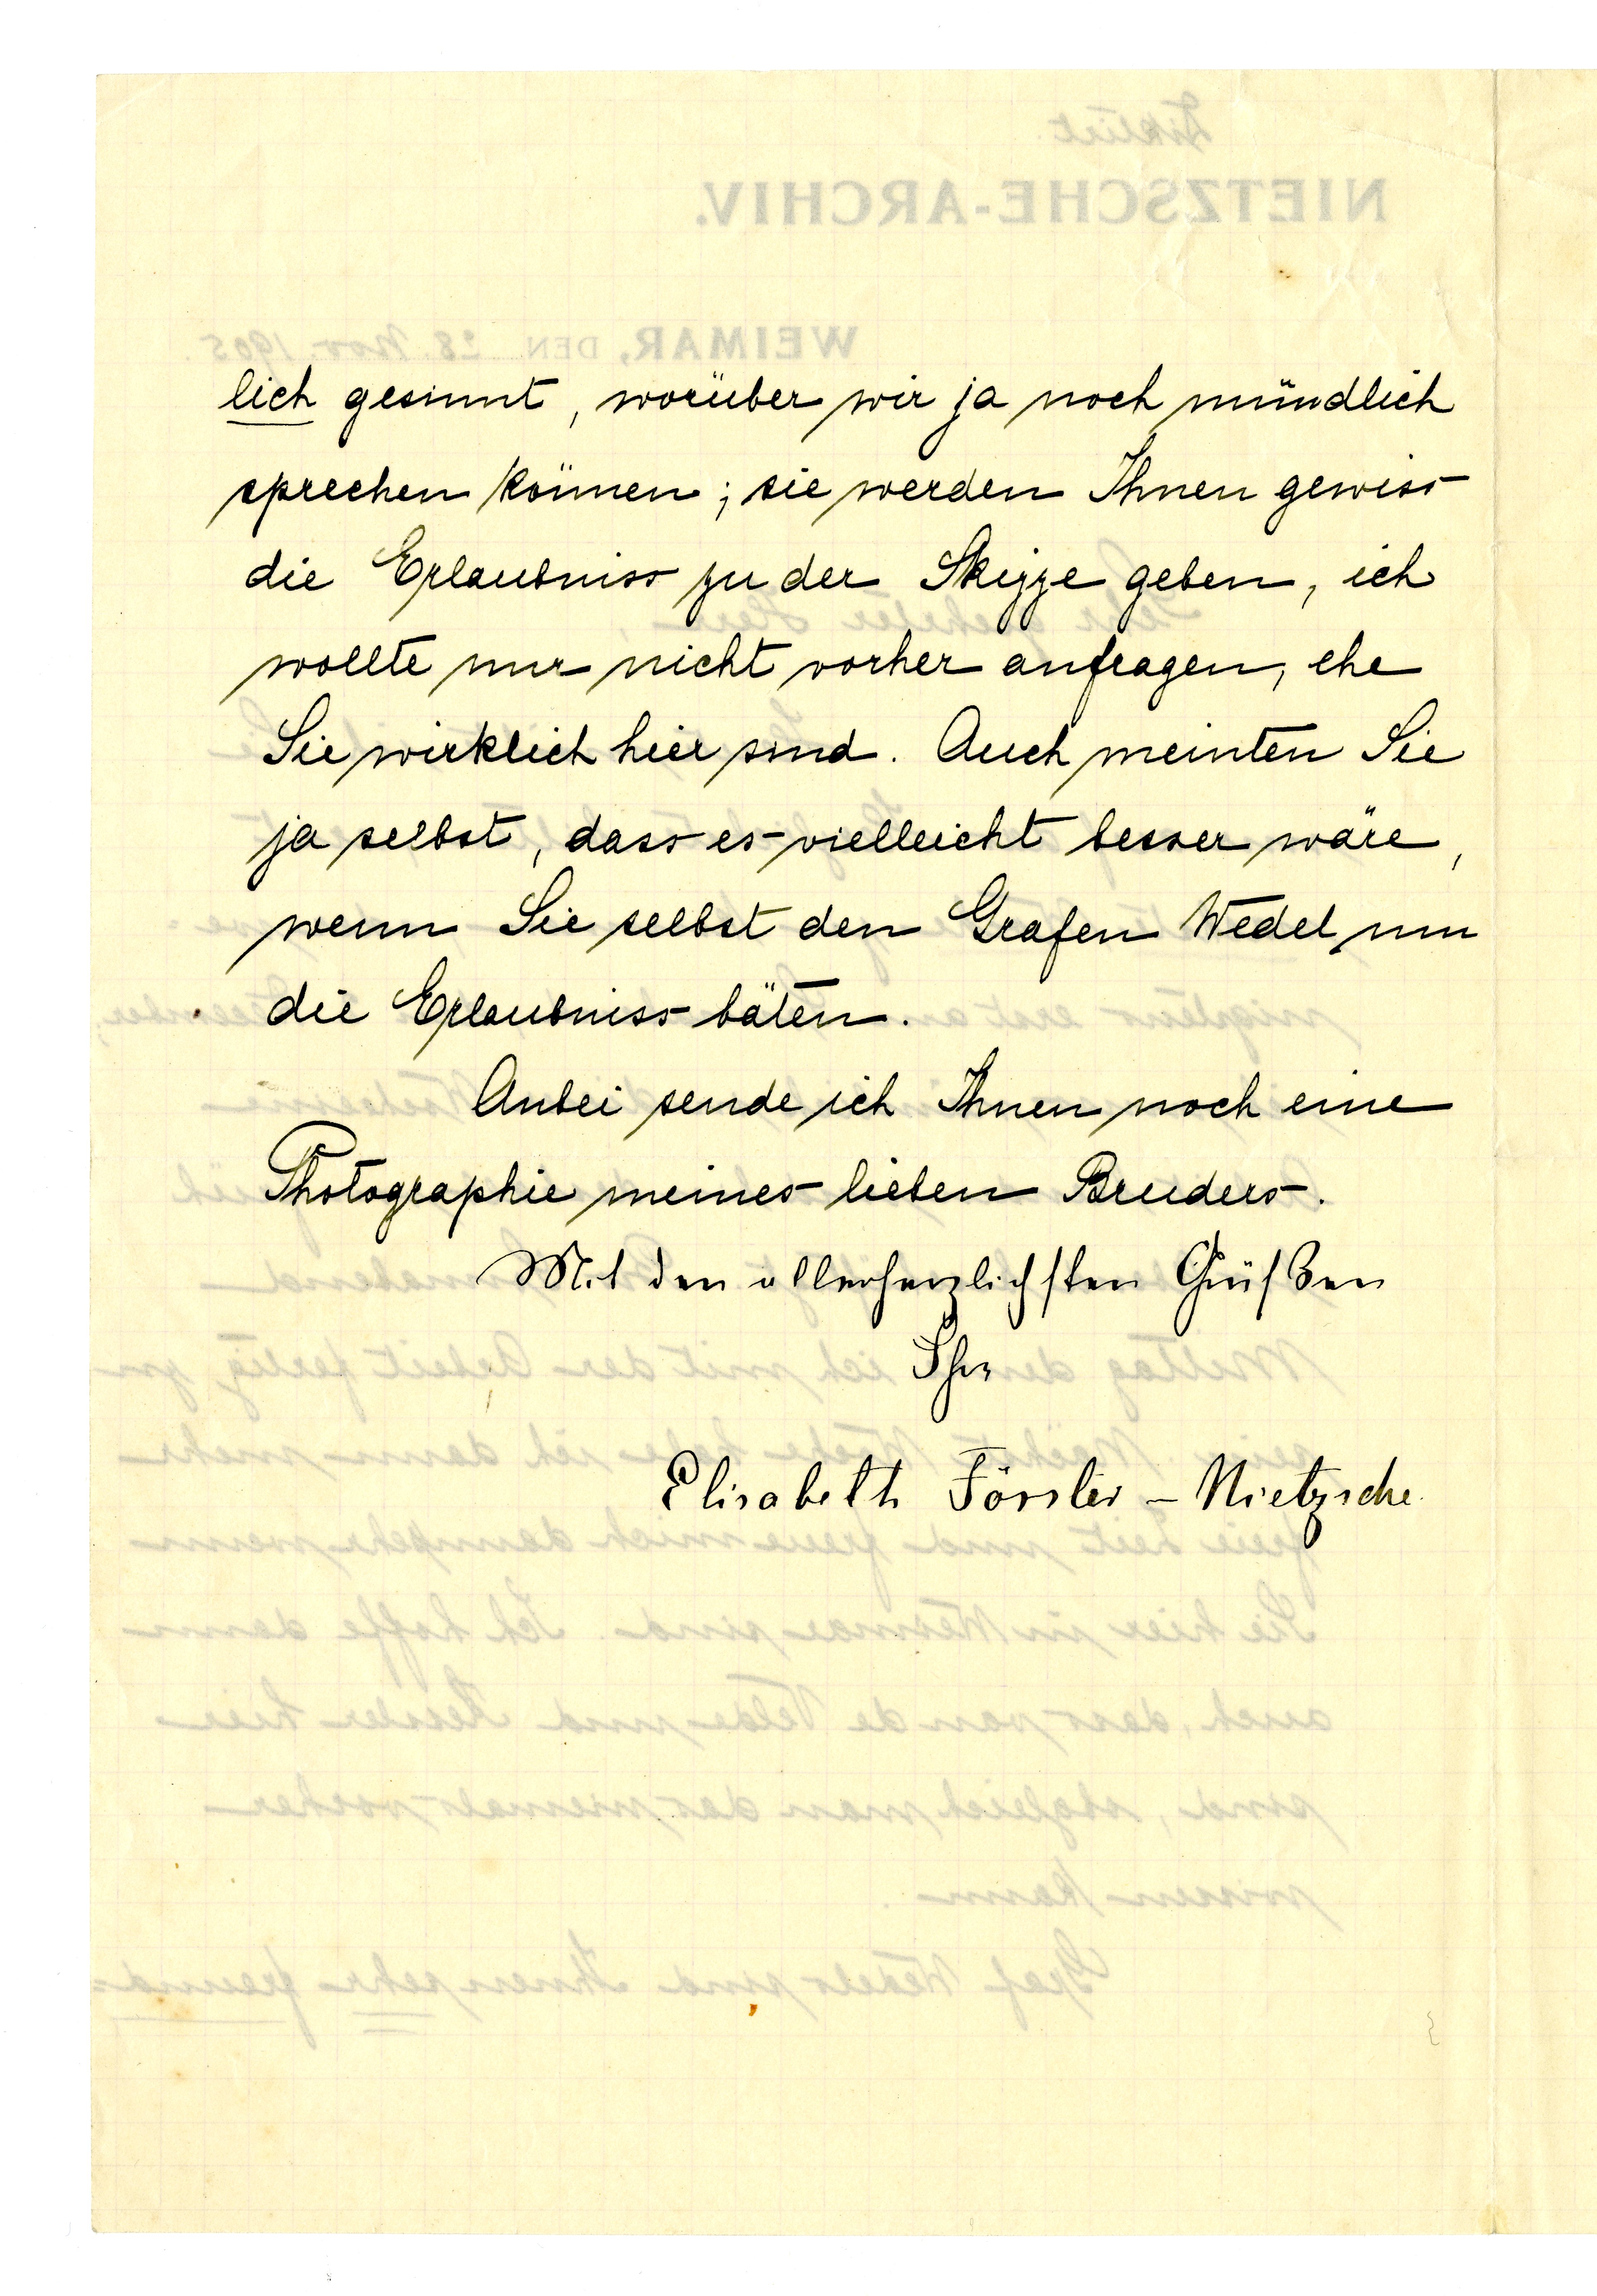 lich gesinnt, worüber wir ja noch mündlich
sprechen können; sie werden Ihnen gewiss
die Erlaubniss zu der Skizze geben, ich
wollte nur nicht vorher anfragen, ehe
Sie wirklich hier sind. Auch meinten Sie
ja selbst, dass es vielleicht besser wäre,
wenn Sie selbst den Grafen Wedel um
die Erlaubniss bäten.
Anbei sende ich Ihnen noch eine
Photographie meines lieben Bruders.
Mit den allerherzlichsten Grüßen
Ihr
Elisabeth Förster-Nietzsche.